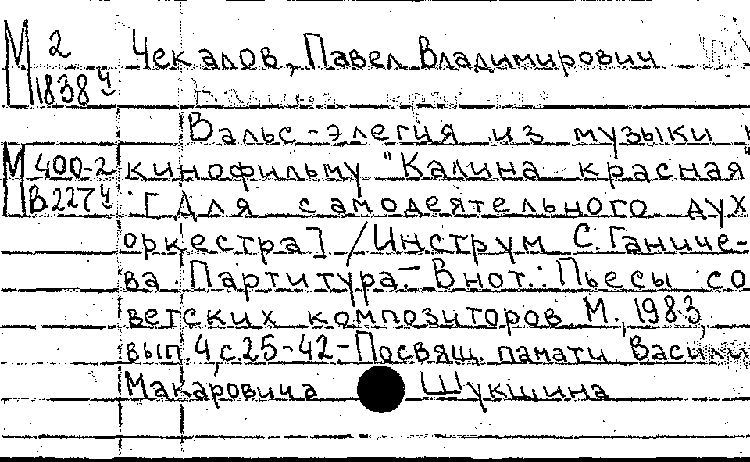 М 2 Чекалов, Павел Владимирович
П 1838 ч
Вальс-элегия из музыки
М 400-2 кинофильму "Калина красная"
П В227 ч [Для самодеятельного дух
оркестра] / Инструм С. Ганиче-
ва. Партитура. - В нот.: Пьесы со
ветских композиторов М., 1983,
вып. 4, с. 25-42 - Посвящ. памяти Васили
Макаровича Шукшина